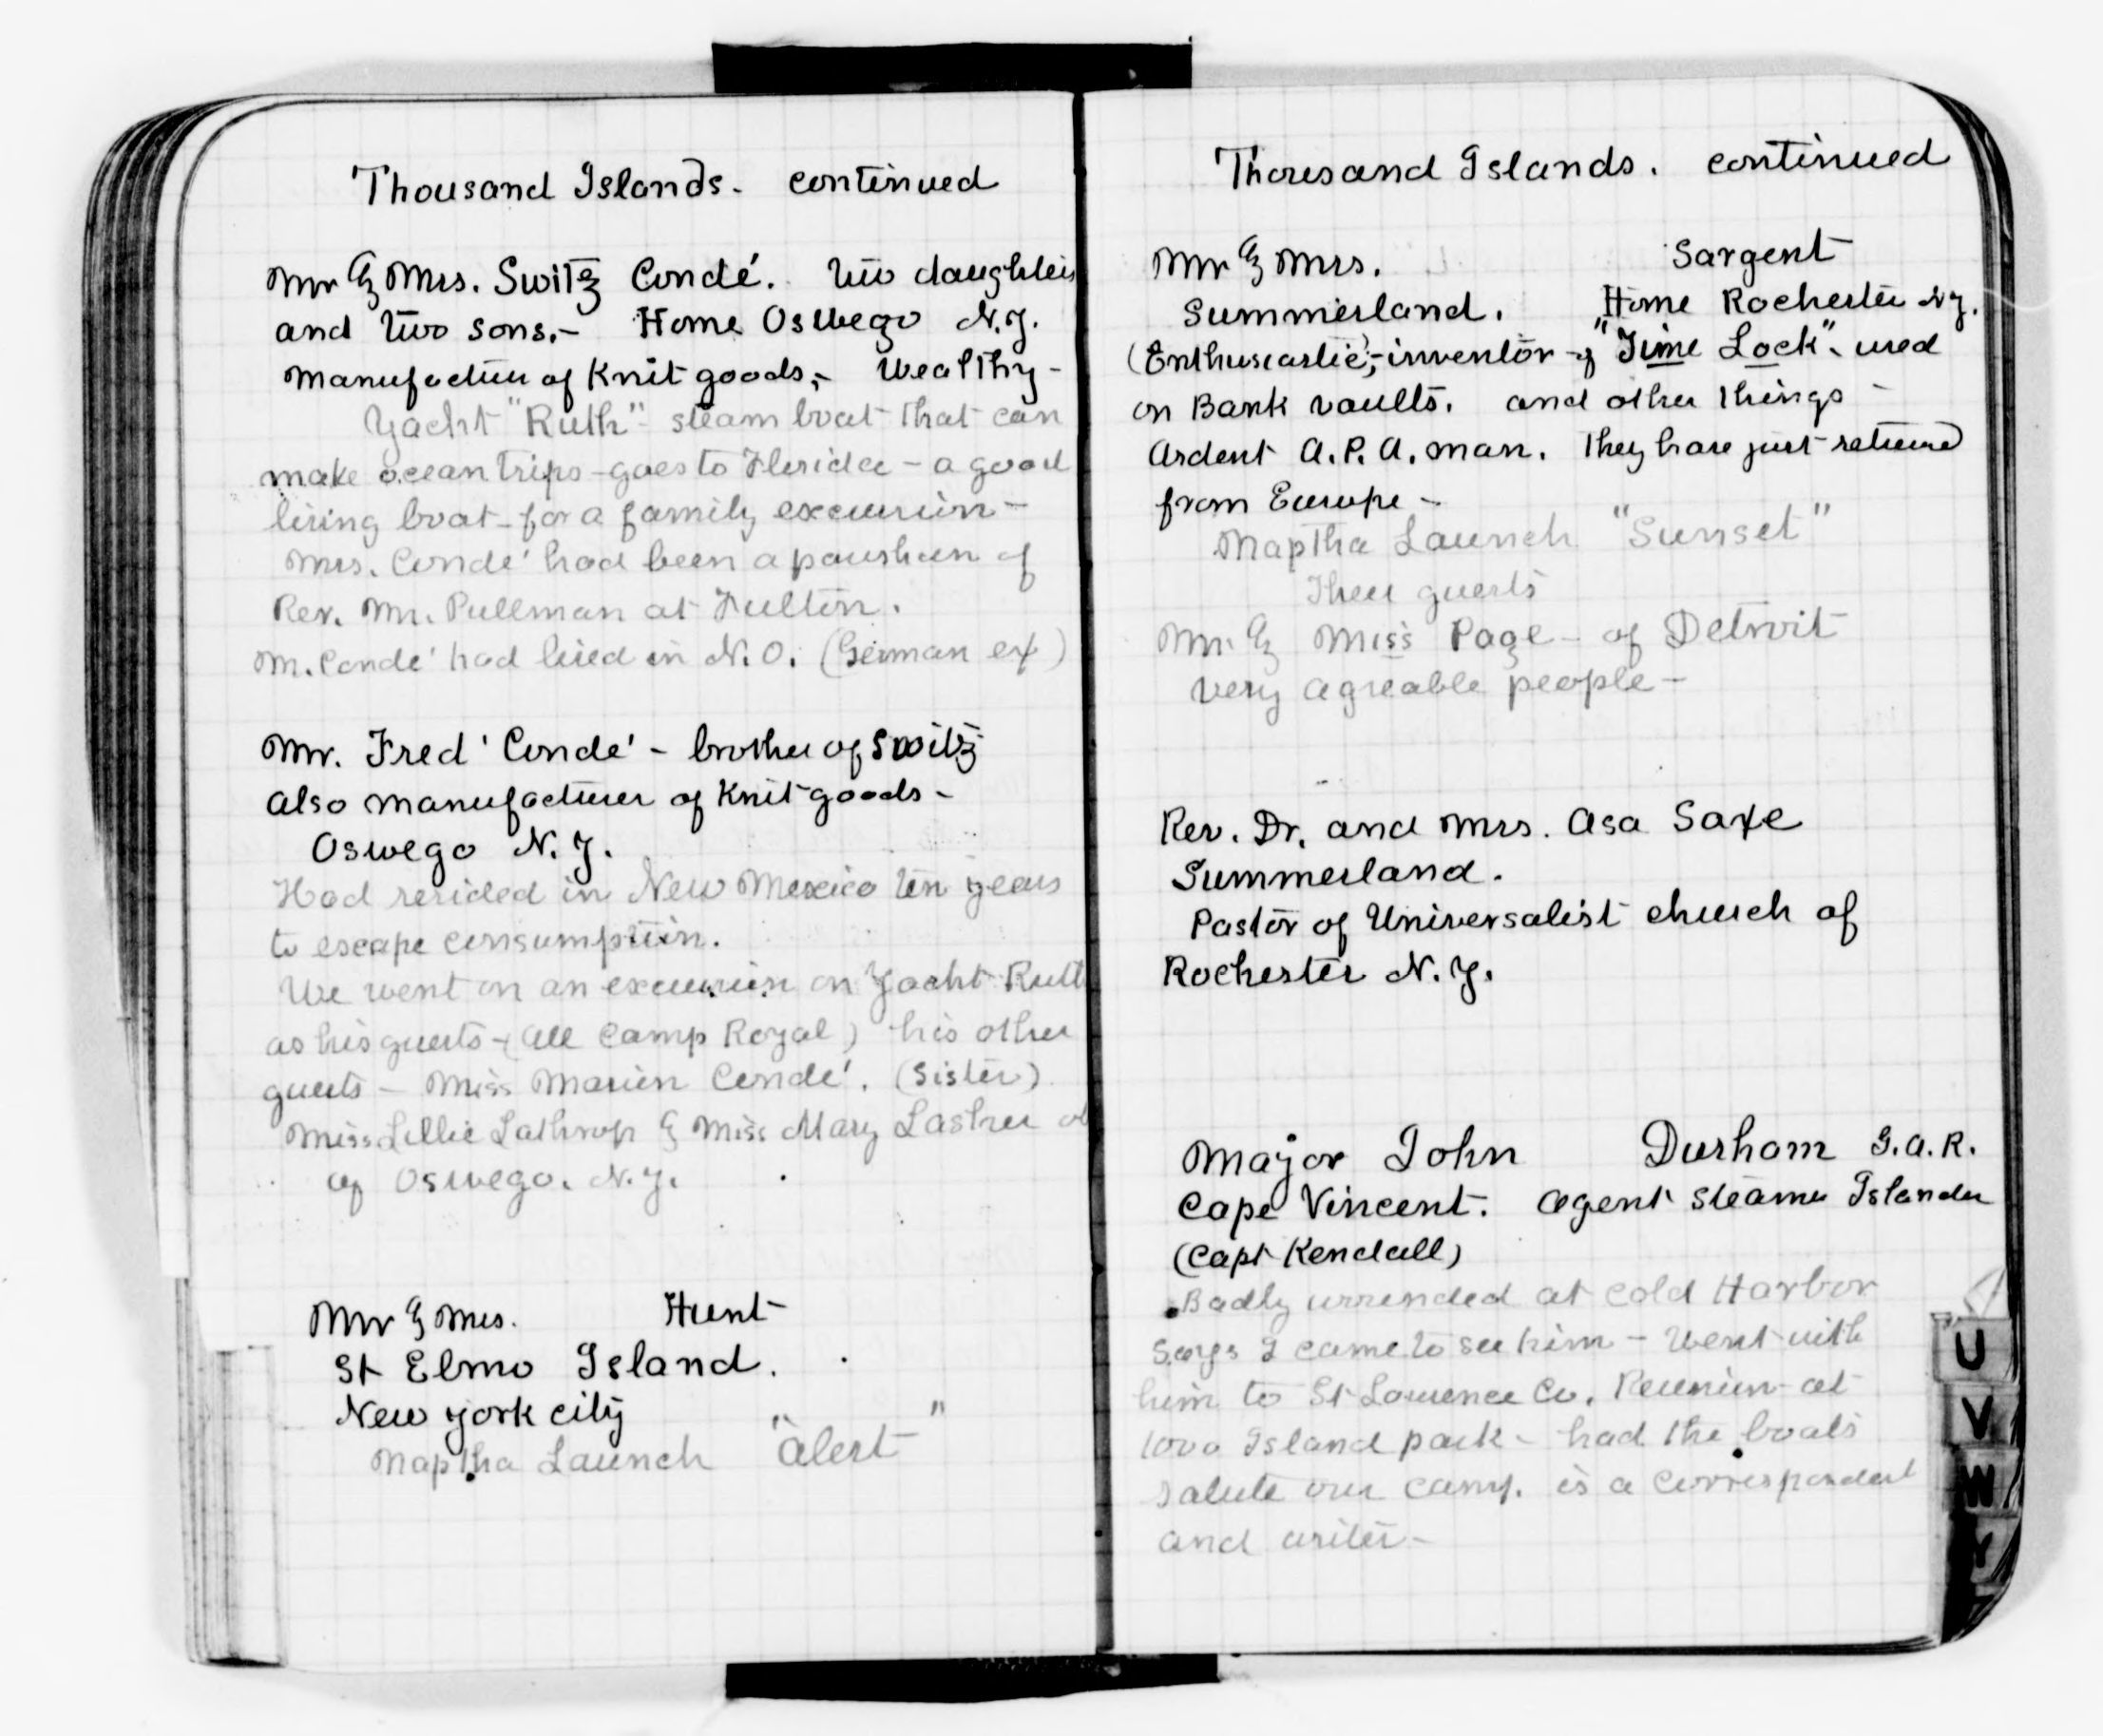 Thousand Islands. continued
Mr & Mrs. Switz Condé. two daughters
and two sons.- Home Oswego N.Y.
manufacturer of Knit goods,- Wealthy-
Yacht "Ruth"- steam boat that can
make ocean trips - goes to Florida - a good
living boat - for a family excursion -
Mrs. Condé had been a parishoner of
Rev. Mr. Pullman at Fulton.
M. Condé had lived in N.O. (German ex)
Mr. Fred Condé - brother of Switz
also manufacturer of Knit goods -
Oswego N.Y.
Had resided in New Mexico ten years
to escape consumption.
We went on an excursion on Yacht Ruth
as his guests - (all Camp Royal) his other
guests - Miss Marion Condé. (Sister)
Miss Lillie Lathrop & Miss Mary Lasher of
of Oswego. N.Y.
Mr & Mrs. Hunt
St Elmo Island.
New york city
Naptha Launch "Alert"
Thousand Islands. continued
Mr & Mrs. Sargent
Summerland. Home Rochester N.Y.
(Enthusiastic,- inventor of "Time Lock", used
on Bank vaults. and other things -
Ardent A.P.A. man. They have just returned
from Europe -
Naptha Launch "Sunset"
Their guests
Mr. & Miss Page - of Detroit
very agreable people -
Rev. Dr. and Mrs. Asa Saxe
Summerland.
Pastor of Universalist church of
Rochester N.Y.
Major John Durham G.A.R.
Cape Vincent. Agent Steamer Islander
(Capt Kendall)
Badly wounded at Cold Harbor
Says I came to see him - Went with
him to St Lawrence Co. Reunion at
1000 Island park - had the boats
salute our camp. is a correspondent
and writer -
U
V
W
Y